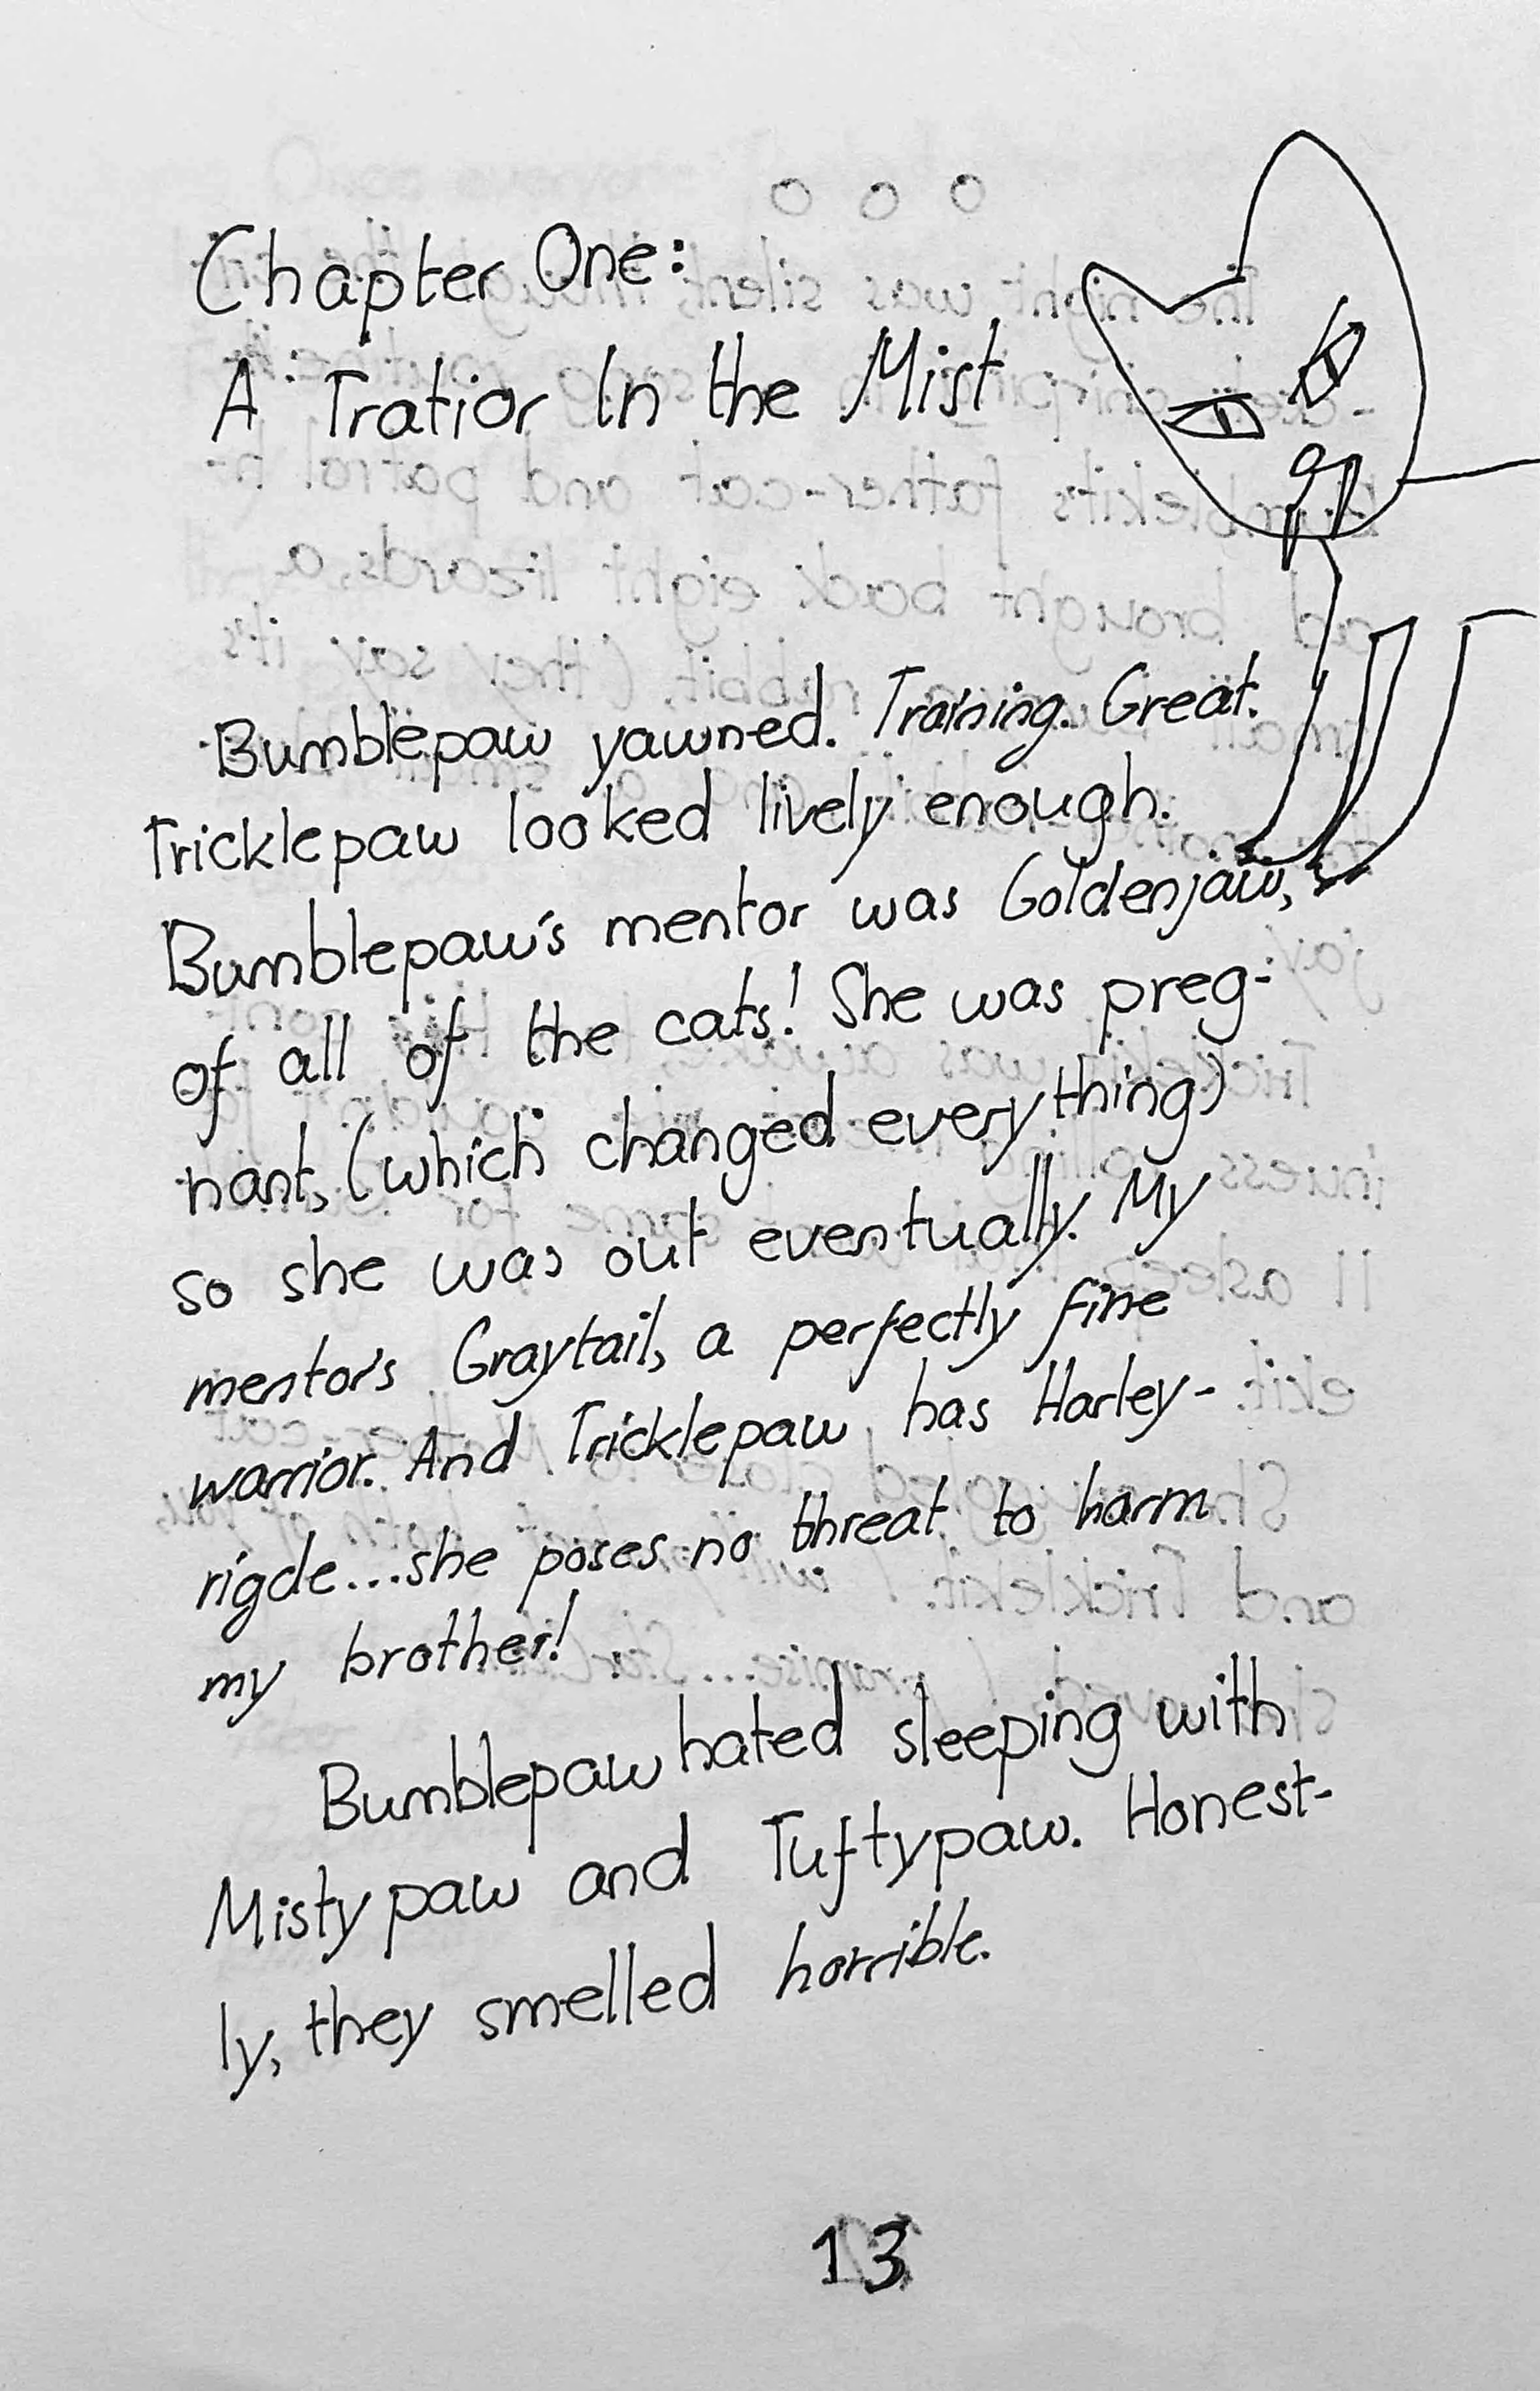 Chapter One:
A Tratior In the Mist
Bumblepaw yawned. Training. Great.
Tricklepaw looked lively enough.
Bumblepaw's mentor was Goldenjaw,
of all of the cats! She was preg-
nant, (which changed everything)
so she was out eventually. My
mentor's Graytail, a perfectly fine
warrior. And Tricklepaw has Harley-
rigde...she poses no threat to harm
my brother!
Bumblepaw hated sleeping with
Mistypaw and Tuftypaw. Honest-
ly, they smelled horrible.
13